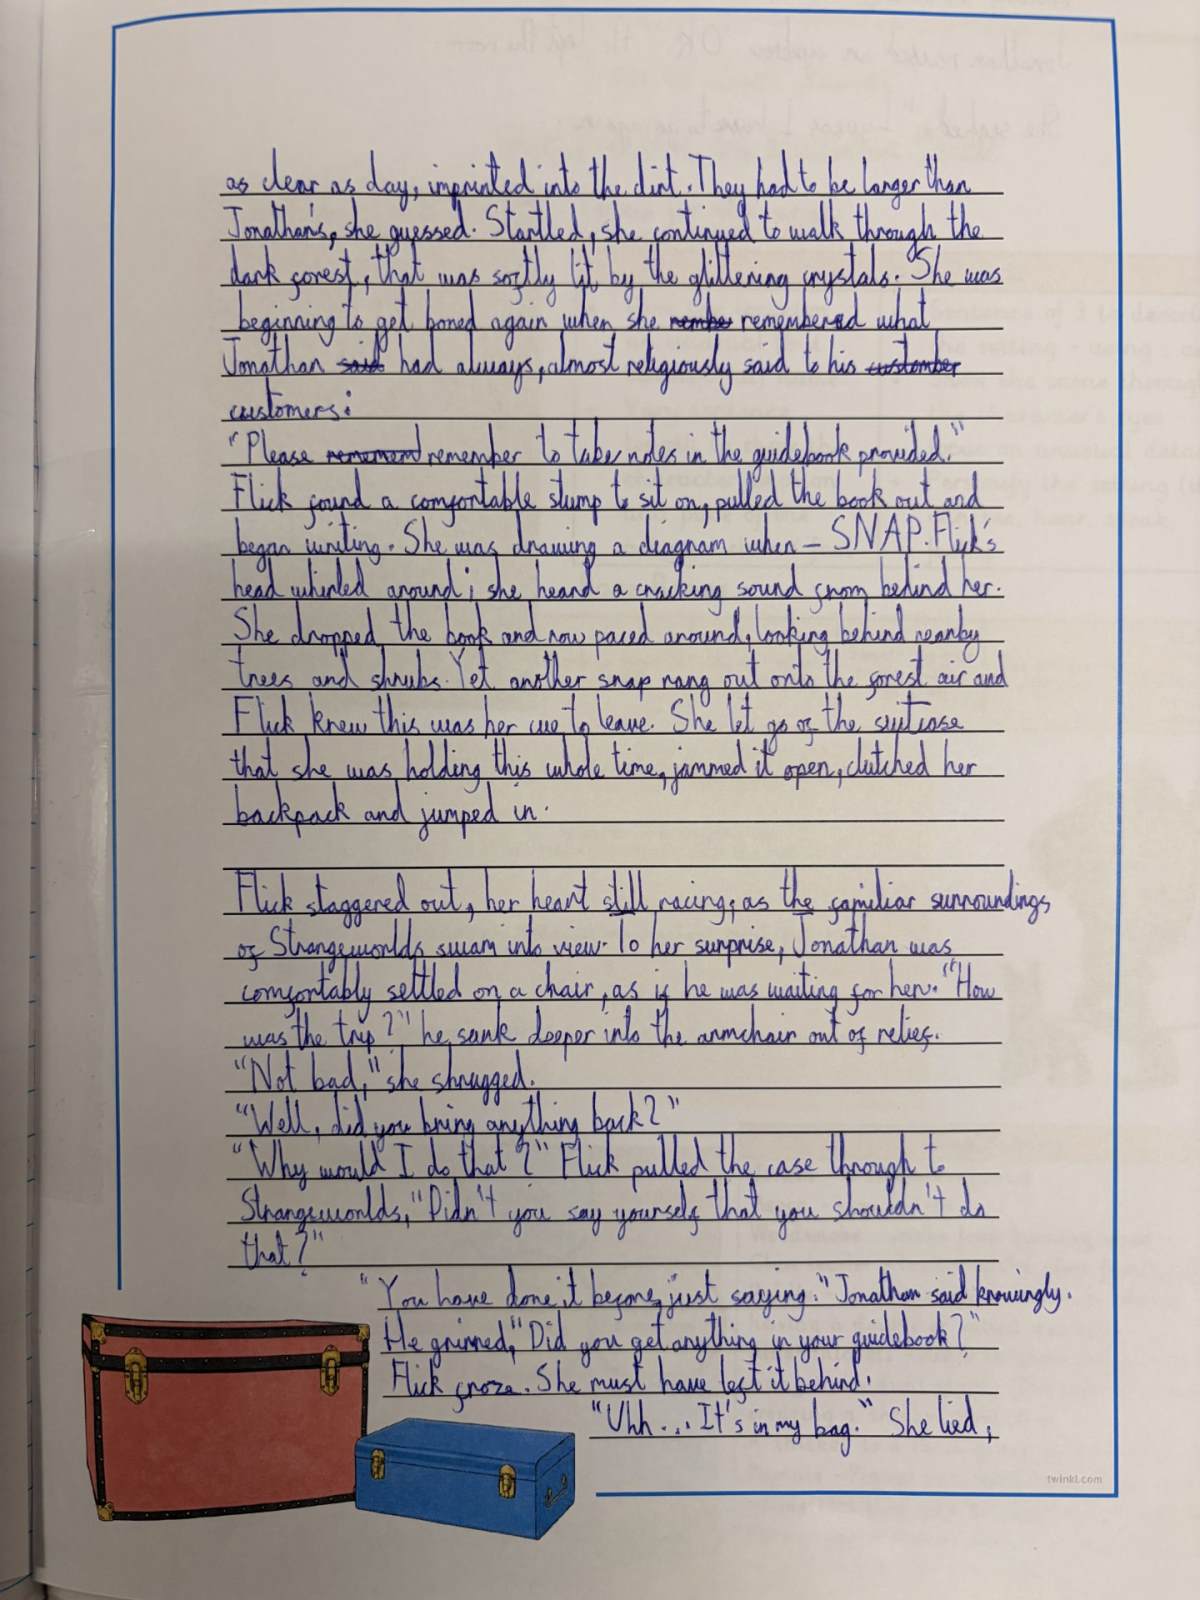 as clear as day, imprinted into the dirt. They had to be larger than
Jonathan's, she guessed. Startled, she continued to walk through the
dark forest, that was softly lit by the glittering crystals. She was
beginning to get bored again when she remembered what
Jonathan said had always, almost religiously said to his
customers:
"Please remember to take notes in the guidebook provided."
Flick found a comfortable stump to sit on, pulled the book out and
began writing. She was drawing a diagram when – SNAP. Flick's
head whirled around; she heard a cracking sound from behind her.
She dropped the book and now paced around, looking behind nearby
trees and shrubs. Yet another snap rang out onto the forest air and
Flick knew this was her cue to leave. She let go of the suitcase
that she was holding this whole time, jammed it open, clutched her
backpack and jumped in.
Flick staggered out, her heart still racing, as the familiar surroundings
of Strangeworlds swam into view. To her surprise, Jonathan was
comfortably settled on a chair, as if he was waiting for her. "How
was the trip?" he sank deeper into the armchair out of relief.
"Not bad," she shrugged.
"Well, did you bring anything back?"
"Why would I do that?" Flick pulled the case through to
Strangeworlds, "Didn't you say yourself that you shouldn't do
that?"
"You have done it before, just saying." Jonathan said knowingly.
He grinned, "Did you get anything in your guidebook?"
Flick froze. She must have left it behind.
"Uhh... It's in my bag." She lied,
twinkl.com